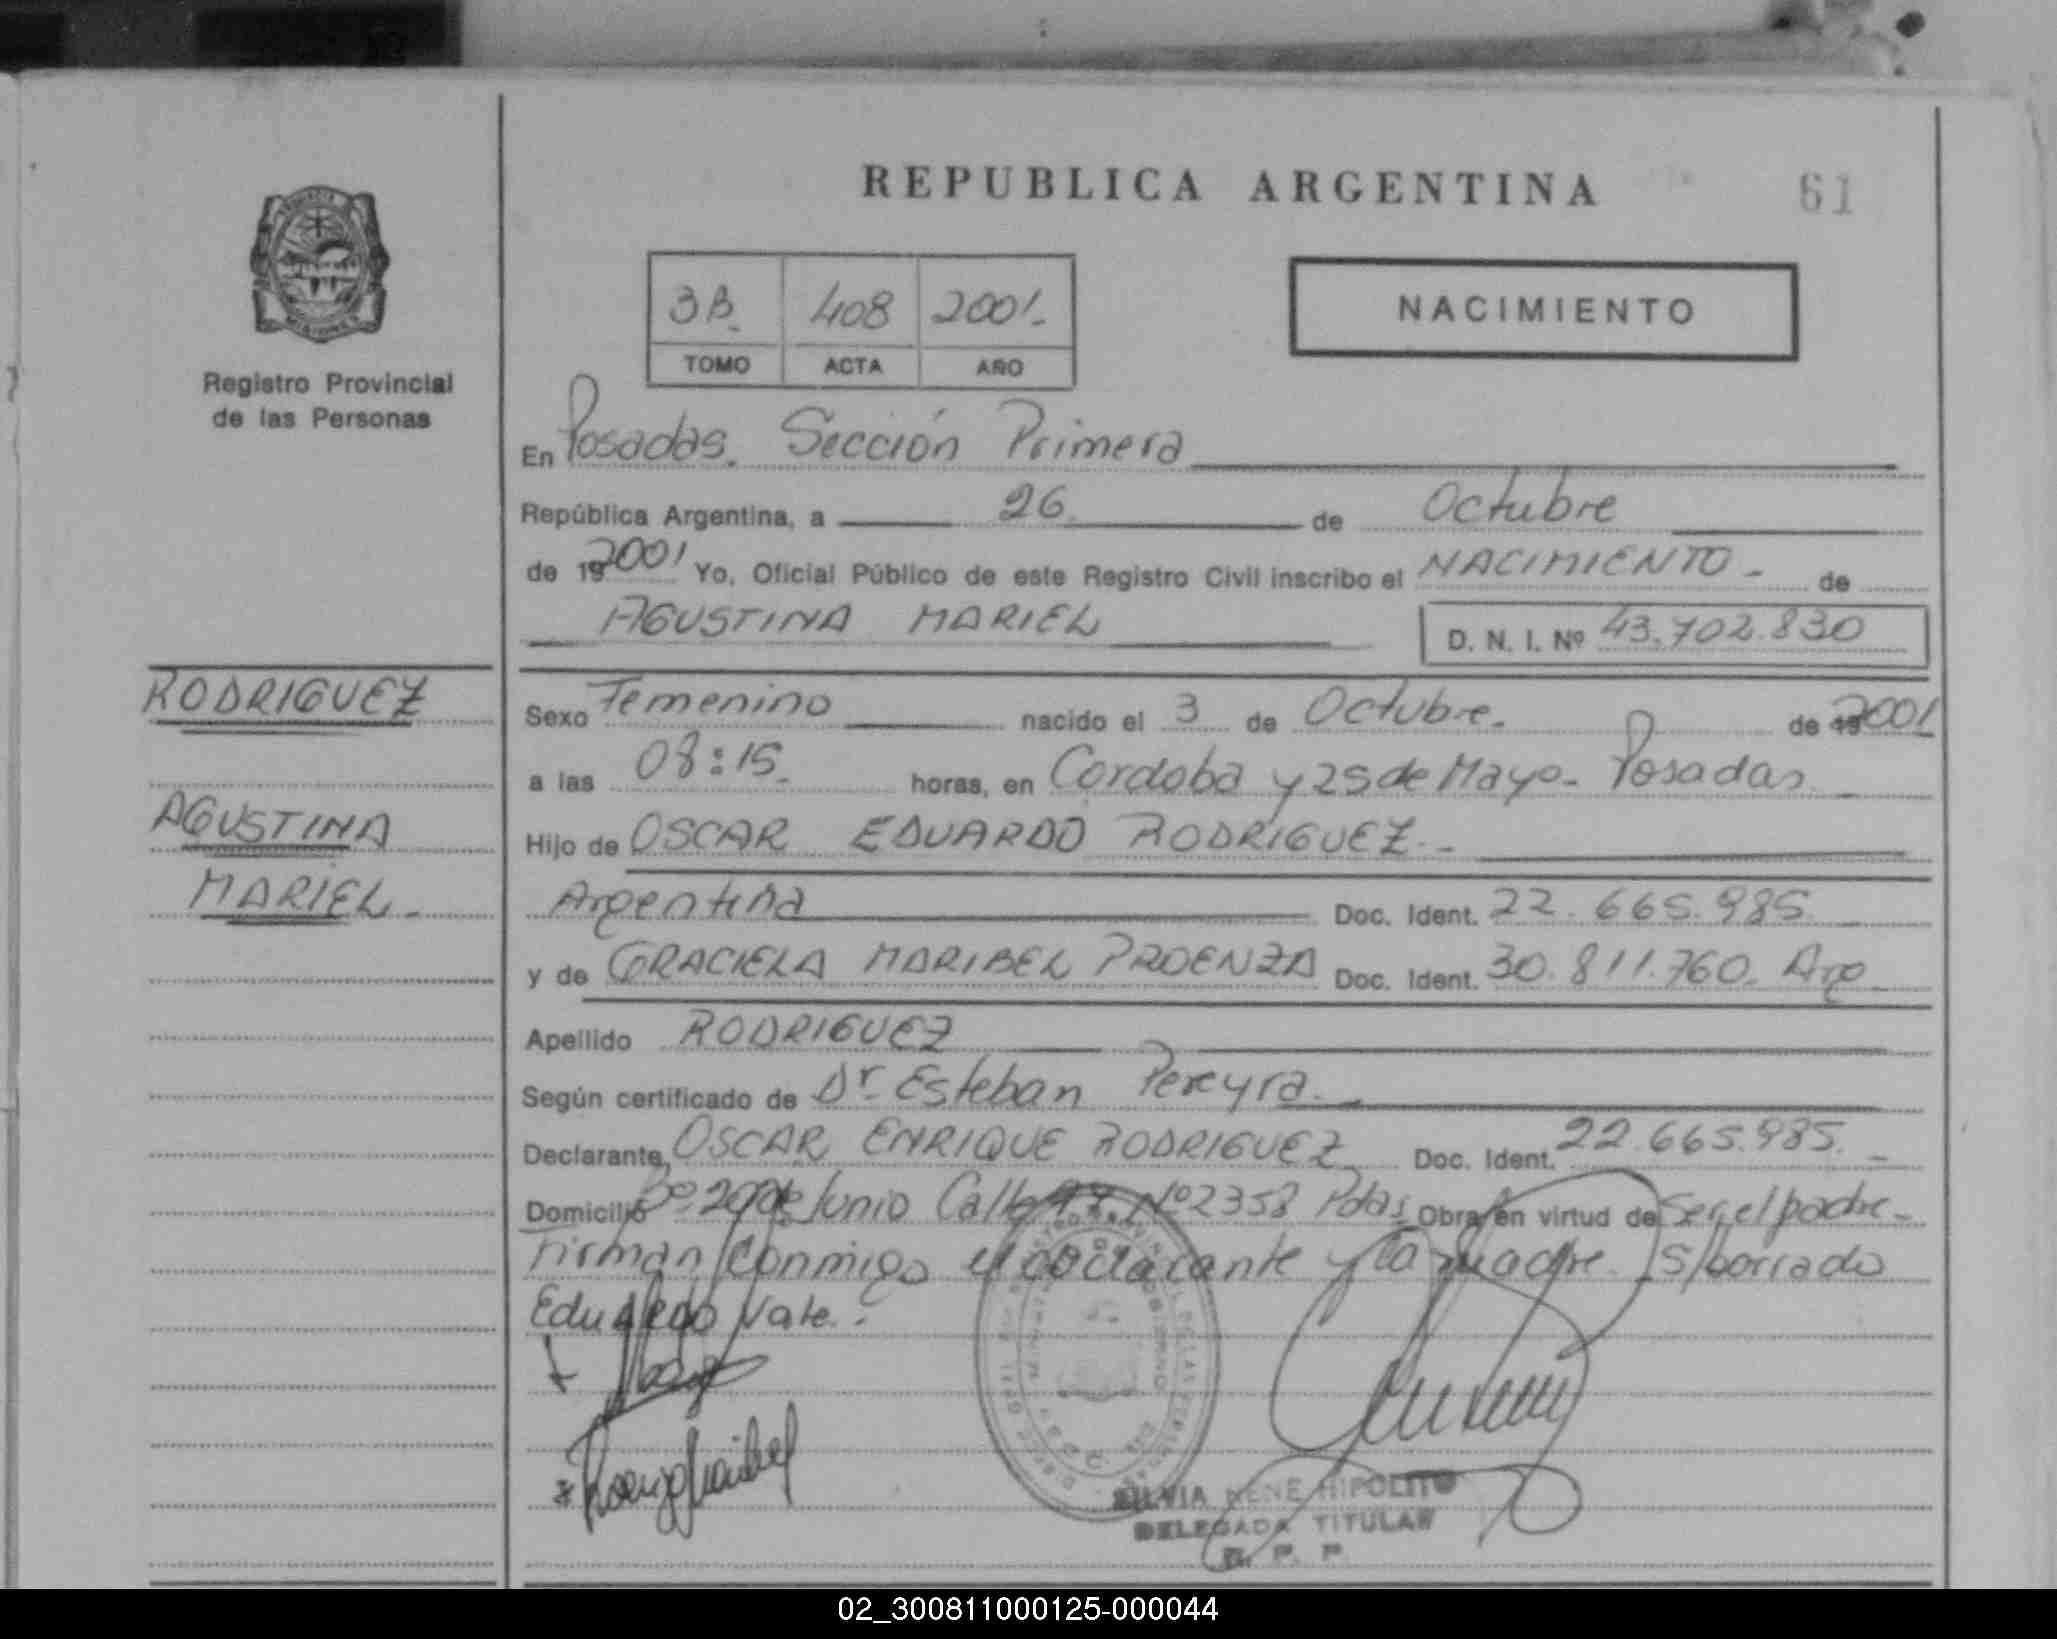 REPUBLICA ARGENTINA
61
3B. 408 2001.
TOMO ACTA AÑO
NACIMIENTO
Registro Provincial
de las Personas
En Posadas. Sección Primera
República Argentina, a 26. de Octubre
de 19 2001 Yo, Oficial Público de este Registro Civil inscribo el NACIMIENTO - de
AGUSTINA MARIEL D. N. I. Nº 43.702.830
RODRIGUEZ
AGUSTINA
MARIEL.
Sexo Femenino nacido el 3 de Octubre. de 19 2001
a las 08:15. horas, en Cordoba y 25 de Mayo- Posadas
Hijo de OSCAR EDUARDO RODRIGUEZ.-
Argentina Doc. Ident. 22.665.985
y de GRACIELA MARIBEL PROENZA Doc. Ident. 30.811.760. Arg
Apellido RODRIGUEZ
Según certificado de Dr Esteban Pereyra.
Declarante, OSCAR ENRIQUE RODRIGUEZ Doc. Ident. 22.665.985.
Domicilio Bº 20 de Junio Calle Nº 2358 Pdas Obra en virtud de Ser el padre-
Firman conmigo el declarante y la madre. S/borrado
Eduardo Vale.-
SILVIA NENE HIPOLITO
DELEGADA TITULAR
R. P. P.
02_300811000125-000044